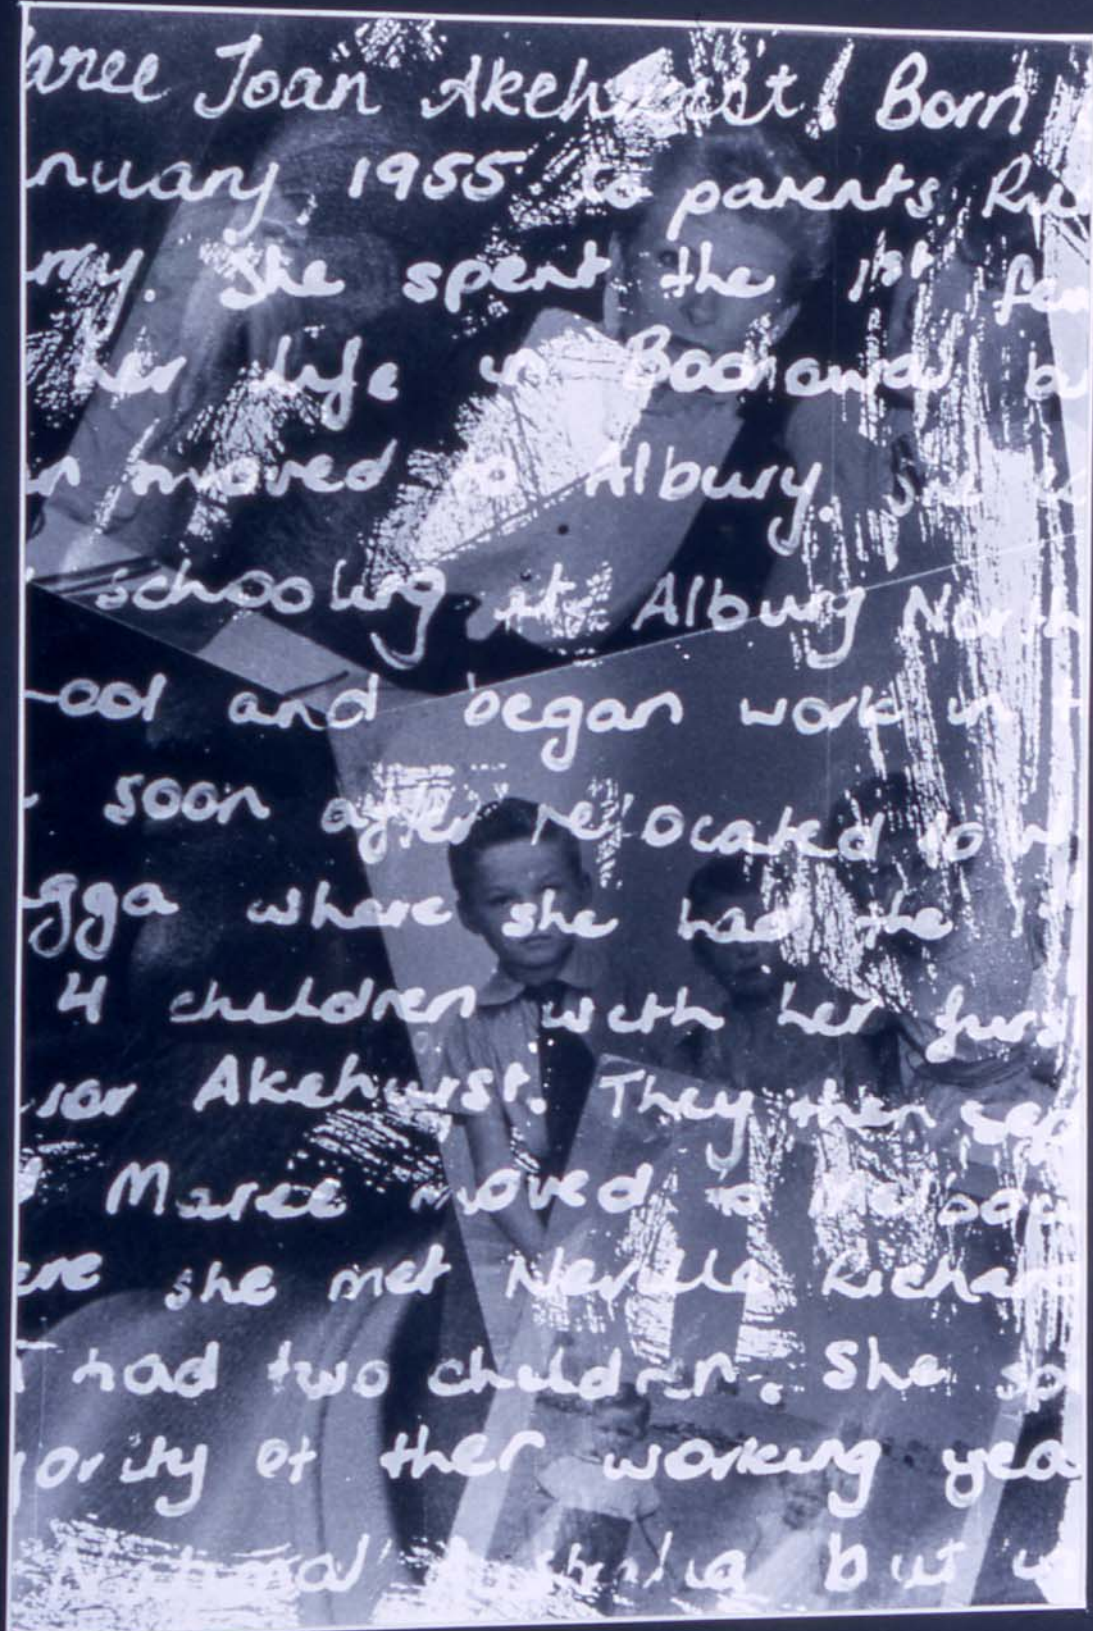 aree Joan Akehurst! Born
nuary, 1955 to parents
rry. She spent the 1st few
her life in
moved to Albury. She
schooling at Albury North
ool and began work in
soon after relocated to
gga where she had the
4 children with her firs
Akehurst. They then sep
Maree moved to Melbou
ere she met Neville Richar
had two children. She
jority of ther working yea
but